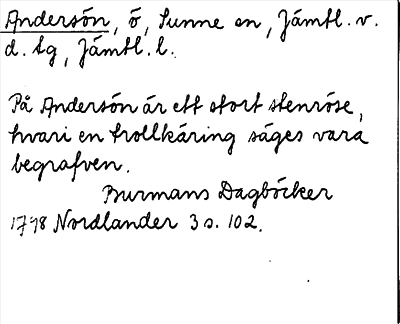 Andersön, ö, Sunne sn, Jämtl. v.
d. tg, Jämtl. l.
På Andersön är ett stort stenröse,
hvari en trollkäring säges vara
begrafven.
Burmans Dagböcker
1798 Nordlander 3 s. 102.